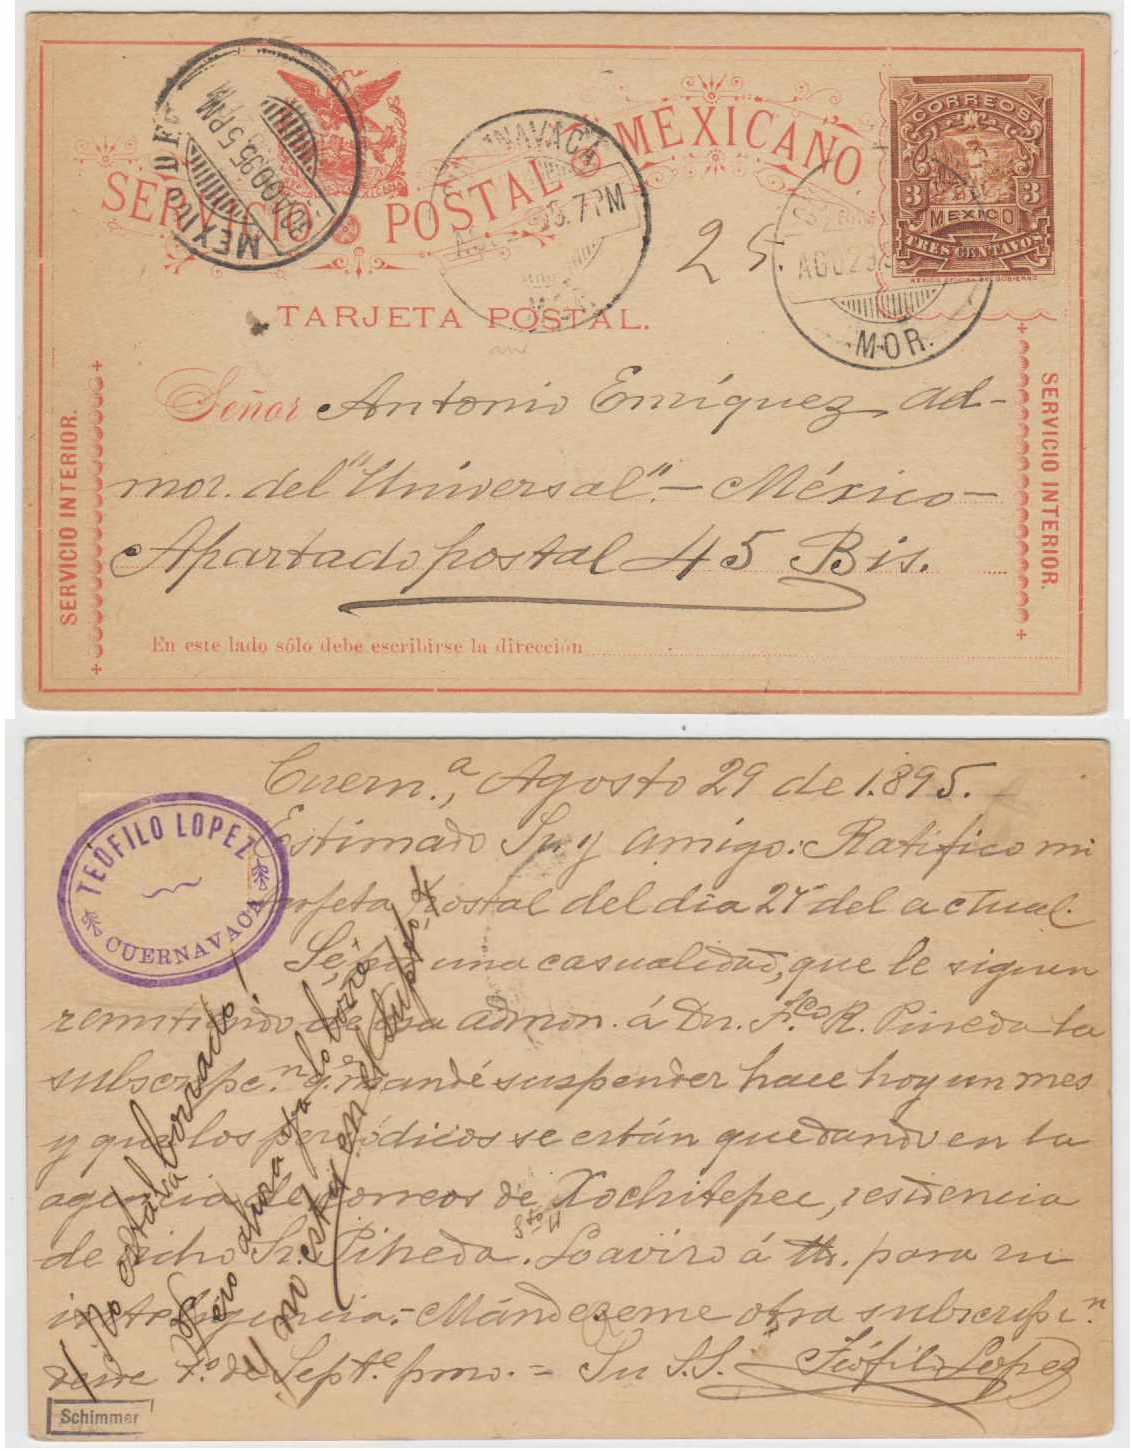 SERVICIO POSTAL MEXICANO
CORREOS
3 MEXICO 3
TRES CENTAVOS
MEXICO D.F.
5 PM
NAVACA
7 PM
MOR.
AGO 29
MOR.
25.
TARJETA POSTAL.
SERVICIO INTERIOR.
SERVICIO INTERIOR.
Señor Antonio Enríquez, ad-
mor. del "Universal".- México-
Apartado postal 45 Bis.
En este lado sólo debe escribirse la dirección
Cuern.ª, Agosto 29 de 1.895.
TEÓFILO LOPEZ
CUERNAVACA
Estimado Sr. y amigo: Ratifico mi
tarjeta postal del dia 27 del actual.
Sería una casualidad, que le siguen
remitiendo de esa admon. á Dn. Fco. R. Pineda la
subscripc.n q.e mandé suspender hace hoy un mes
y que los periódicos se están quedando en la
agencia de correos de Xochitepec, residencia
de dicho Sr. Pineda. Lo aviso á para su
inteligencia.- Mándeseme otra subscripc.n
desde 1º. de Sept.e pmo. = Su S.S. Teófilo Lopez
No estaba borrado!
Pero ahora ya lo borré
y no está en el Supto.
Schimmer